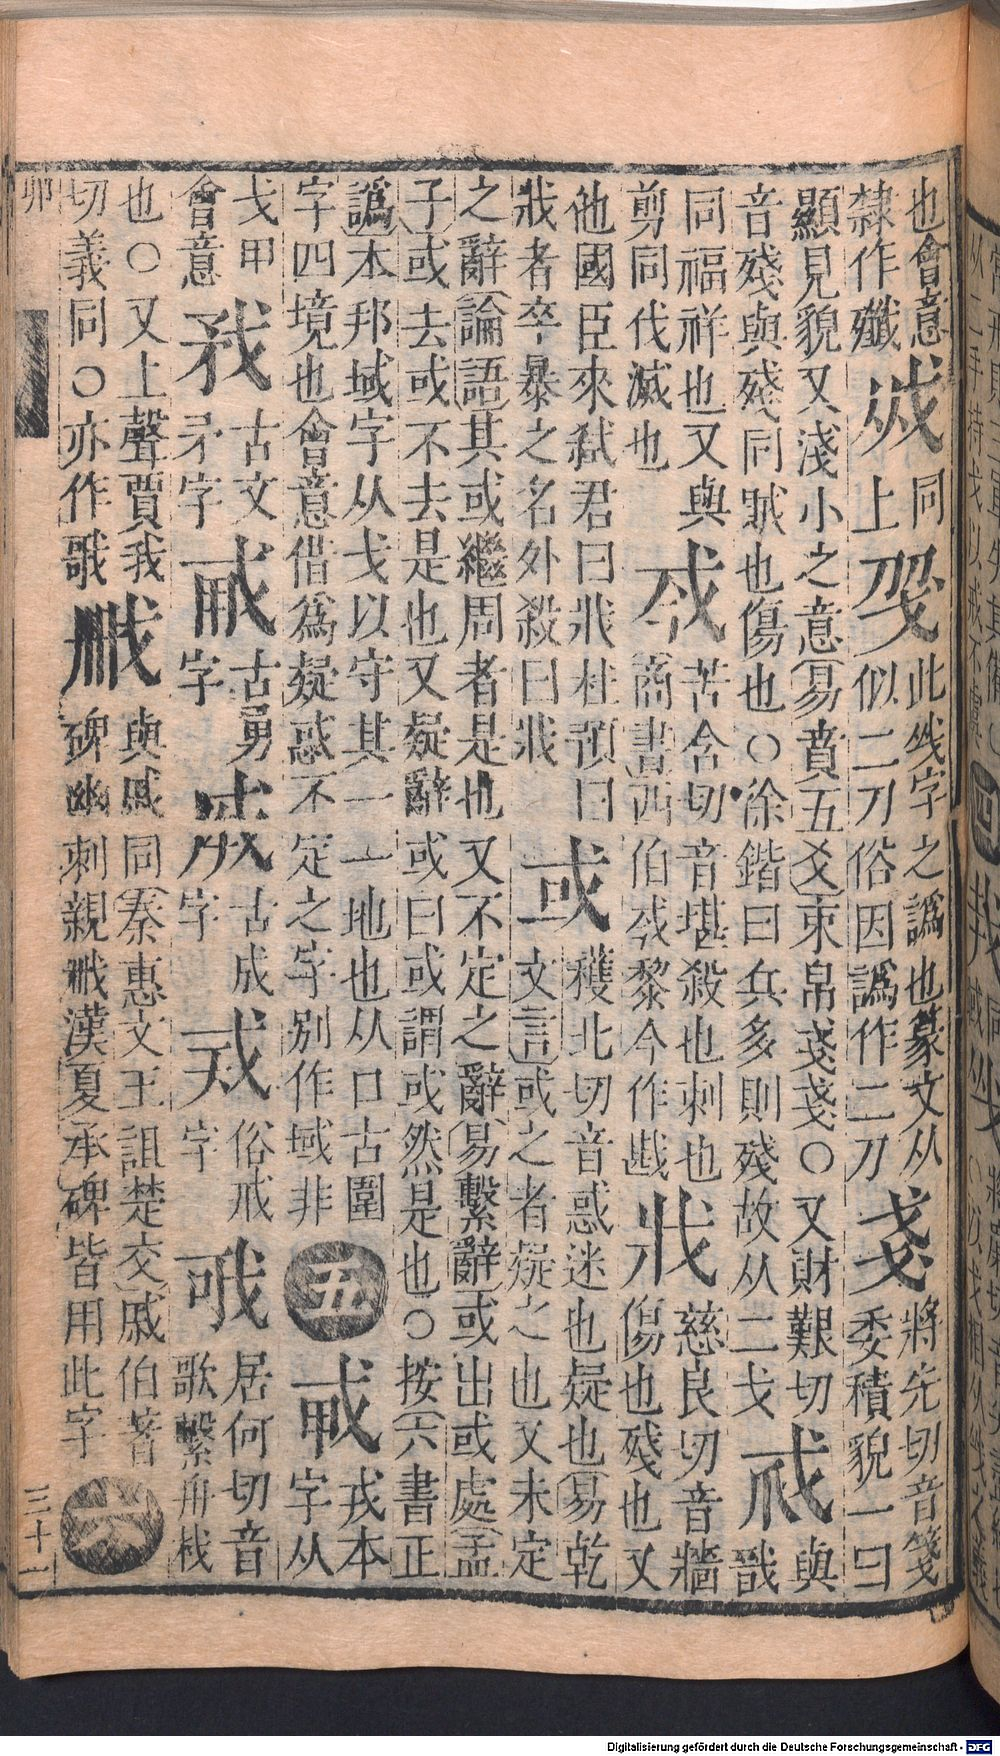 也會意
隸作殲
㦰
同
上
此㦮字之譌也篆文从
似二刀俗因譌作二刀
戔
將先切音箋
委積貌一曰
顯見貌又淺小之意[易賁五爻]束帛戔戔○又財艱切
音殘與殘同賊也傷也○徐鍇曰兵多則殘故从二戈
與
哉
同福祥也又與
剪同伐滅也
𢦟
苦含切音堪殺也刺也
[商書]西伯𢦟黎今作戡
戕
慈良切音牆
傷也殘也又
他國臣來弑君曰戕杜預曰
戕者卒暴之名外殺曰戕
或
穫北切音惑迷也疑也[易乾
文言]或之者疑之也又未定
之辭[論語]其或繼周者是也又不定之辭[易繫辭]或出或處[孟
子]或去或不去是也又疑辭或曰或謂或然是也○按[六書正
譌]本邦域字从戈以守其一一地也从口古圍
字四境也會意借爲疑惑不定之字別作域非
五
戎本
字从
戈甲
會意
古文
矛字
古勇
字
古成
字
俗戒
字
居何切音
歌繫舟栰
也○又上聲賈我
切義同○亦作戨
與戚同[秦惠文王詛楚文]戚伯著
碑幽刺親戚漢[夏承碑]皆用此字
六
卯
三十一
Digitalisierung gefördert durch die Deutsche Forschungsgemeinschaft - DFG